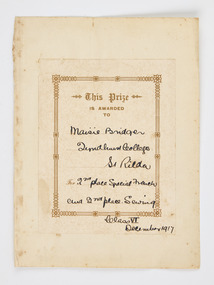 This Prize
IS AWARDED
TO
Maisie Bridger
Lyndhurst College
St Kilda
For 2nd place Special French
and 2nd place Sewing
Class VI
December 1917